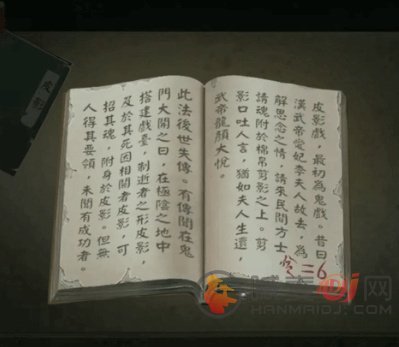 皮影
皮影戲，最初為鬼戲。昔日
漢武帝愛妃李夫人故去，為
解思念之情，請來民間方士
請魂附於棉帛剪影之上。剪
影口吐人言，猶如夫人生還，
武帝龍顏大悅。
此法後世失傳。有傳聞在鬼
門大開之日，在極陰之地中
搭建戲臺，制逝者之形皮影，
及於其死因相關者皮影，可
招其魂，附身於皮影。但無
人得其要領，未聞有成功者。
三6
网
HANMAIDJ.COM